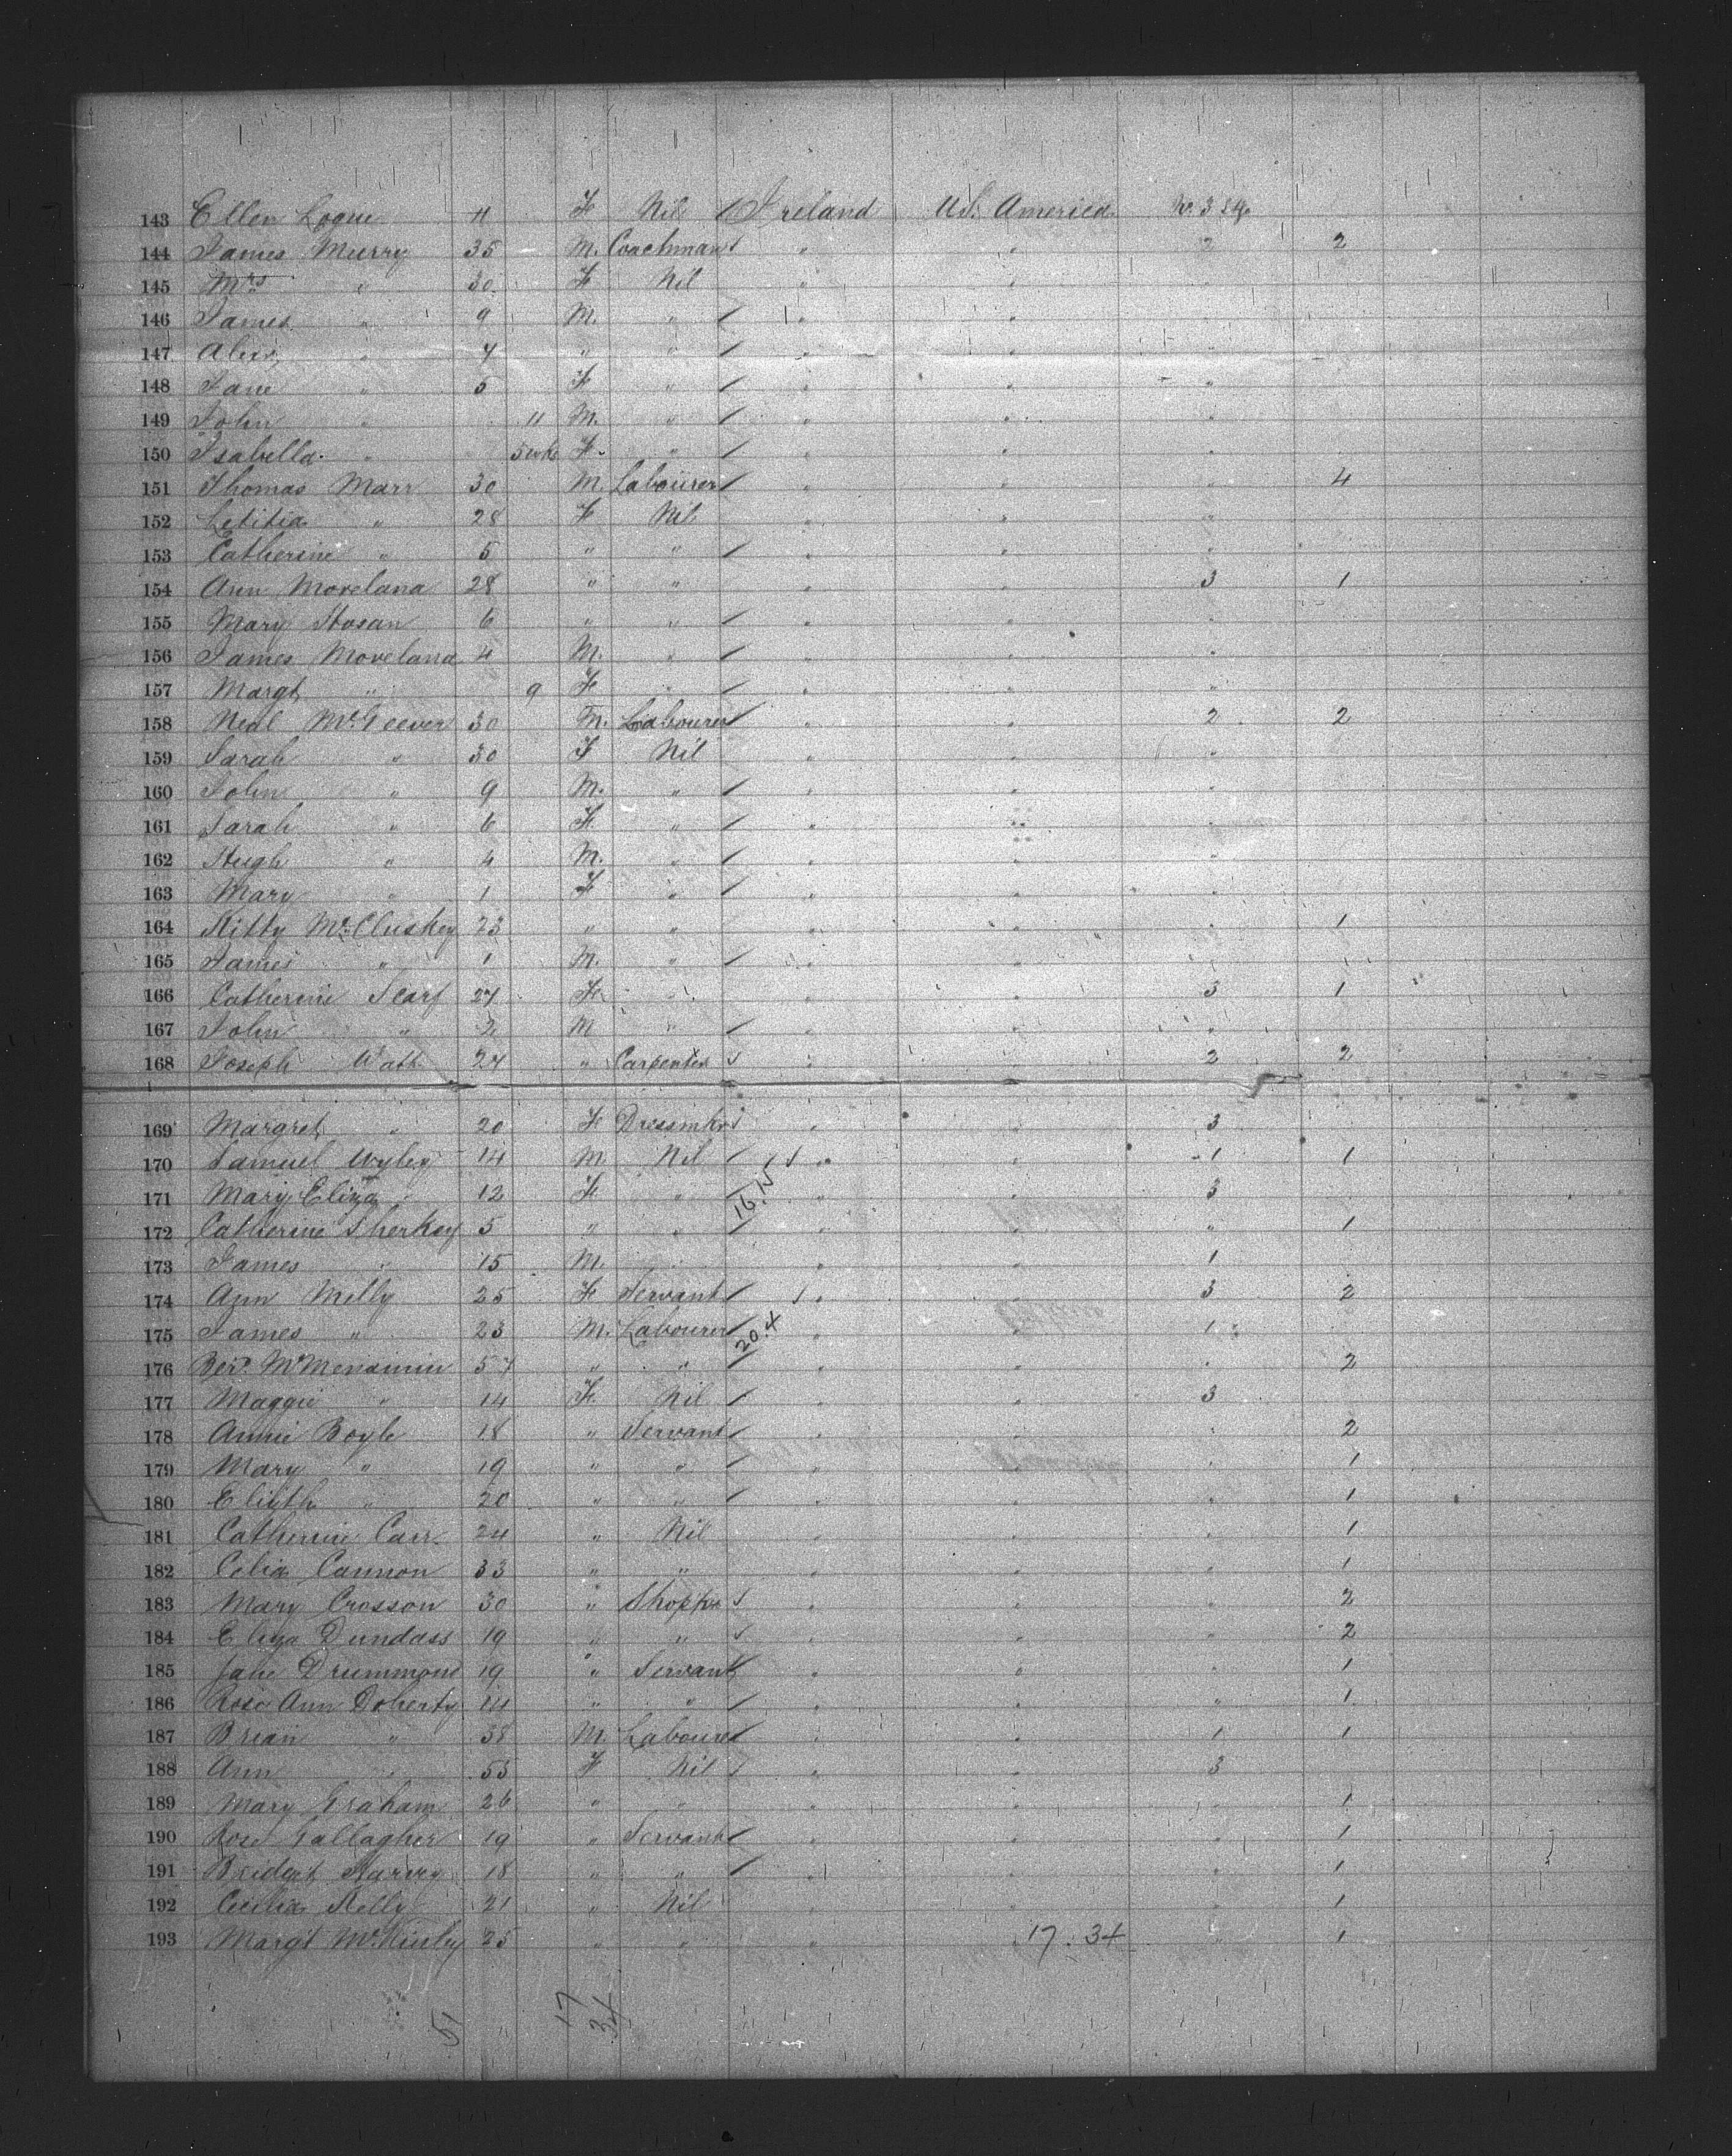 143 Ellen Logue 11 F Nil / Ireland U.S. America No. 3 Stge
144 James Murry 35 M. Coachman / " " 2 2
145 Mrs " 30 F Nil " " "
146 James " 9 M. " / " " "
147 " 4 " " / " " "
148 Jane " 5 F " / " " "
149 John " 11 M. " / " " "
150 Isabella " 5 wks F " / " " "
151 Thomas Marr 30 M. Labourer / " " " 4
152 Letitia " 28 F Nil " " "
153 Catherine " 5 " " / " " "
154 Ann Moreland 28 " " " " 3 1
155 Mary Hosan 6 " " / " " "
156 James Moreland 4 M. " / " " "
157 Margt " 9 F " / " " "
158 Neal McGeever 30 M. Labourer / " " 2 2
159 Sarah " 30 F Nil " " "
160 John " 9 M. " / " " "
161 Sarah " 6 F " / " " "
162 Hugh " 4 M. " / " " "
163 Mary " 1 F " / " " "
164 Kitty McCluskey 23 " " " " " 1
165 James " 1 M. " / " " "
166 Catherine Scarf 27 F " " " 3 1
167 John " 2 M " / " " "
168 Joseph Watt 24 " Carpenter / " " 2 2
169 Margret " 20 F Dressmkr / " " 3
170 Samuel Wyley 14 M Nil / 1 " " 1 1
171 Mary Eliza " 12 F " / 16.15 " " 3
172 Catherine Sherkey 5 " " / " " " 1
173 James " 15 M. " " " 1
174 Ann Melly 25 F Servant / 1 " " 3 2
175 James " 23 M. Labourer / 20.4 " " 1
176 McMenamin 57 " " " " " 2
177 Maggie " 14 F Nil / " " 3
178 Annie Boyle 18 " Servant / " " " 2
179 Mary " 19 " " / " " " 1
180 Elizth " 20 " " / " " " 1
181 Catherine Carr 24 " Nil " " " 1
182 Celia Cannon 33 " " " " " 1
183 Mary Crosson 30 " Shopkr / " " " 2
184 Eliza Dundass 19 " " / " " " 2
185 Jane Drummond 19 " Servant / " " " 1
186 Rose Ann Doherty 14 " " / " " " 1
187 Brian " 38 M. Labourer / " " 1 1
188 Ann " 53 F Nil / " " 3
189 Mary Graham 26 " " " " " 1
190 Rose Gallagher 19 " Servant / " " " 1
191 Bridget Harvey 18 " " / " " " 1
192 Cecilia Kelly 21 " Nil " " " 1
193 Margt McKinley 25 " " " 17.34 " 1
51 17 34